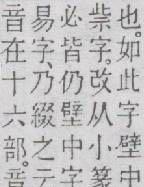 也。如此字壁中
祡字。改从小篆
必皆仍壁中字
易字、乃綴之云
音在十六部。音